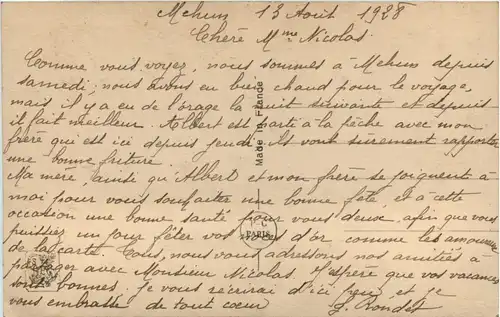 Mehun 13 Août 1928
Chère Mme Nicolas.
Comme vous voyez, nous sommes à Mehun depuis
samedi, nous avons eu bien chaud pour le voyage,
mais il y a eu de l'orage la nuit suivante et depuis
il fait meilleur. Albert est parti à la pêche avec mon
frère qui est ici depuis jeudi. Ils vont sûrement rapporter
une bonne friture.
Ma mère, ainsi qu'Albert et mon frère se joignent à
moi pour vous souhaiter une bonne fête, et à cette
occasion une bonne santé pour vous deux, afin que vous
puissiez un jour fêter vos noces d'or comme les amoureux
de la carte. Tous, nous vous adressons nos amitiés à
partager avec Monsieur Nicolas. J'espère que vos vacances
sont bonnes. Je vous récrirai d'ici peu, et je
vous embrasse de tout cœur
Made in France
PARIS